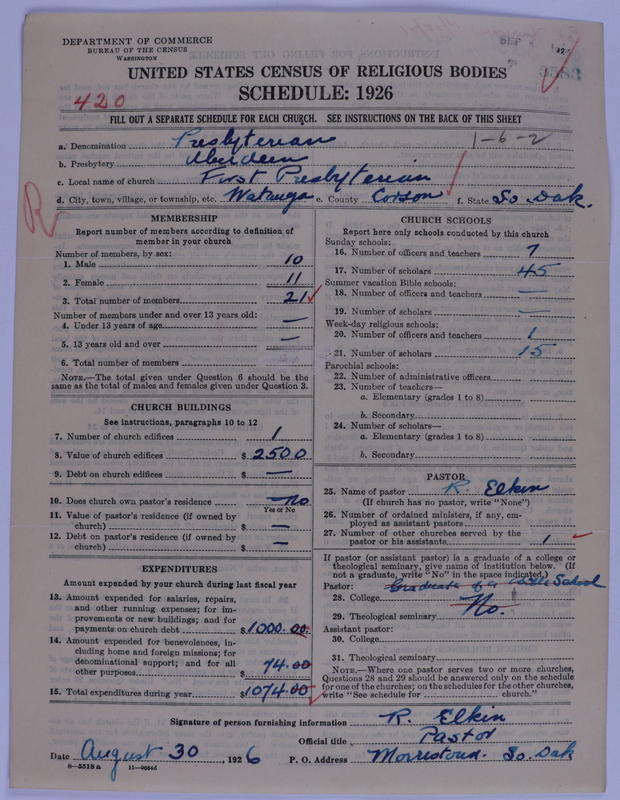 DEPARTMENT OF COMMERCE
BUREAU OF THE CENSUS
WASHINGTON
SEP
UNITED STATES CENSUS OF RELIGIOUS BODIES
SCHEDULE: 1926
420
FILL OUT A SEPARATE SCHEDULE FOR EACH CHURCH. SEE INSTRUCTIONS ON THE BACK OF THIS SHEET
a. Denomination Presbyterian 1-6-2
b. Presbytery Aberdeen
c. Local name of church First Presbyterian
d. City, town, village, or township, etc. Watauga e. County Corson f. State So Dak.
R
MEMBERSHIP
Report number of members according to definition of
member in your church
Number of members, by sex:
1. Male 10
2. Female 11
3. Total number of members 21
Number of members under and over 13 years old:
4. Under 13 years of age —
5. 13 years old and over —
6. Total number of members
NOTE.—The total given under Question 6 should be the
same as the total of males and females given under Question 3.
CHURCH BUILDINGS
See instructions, paragraphs 10 to 12
7. Number of church edifices 1
8. Value of church edifices $ 2500
9. Debt on church edifices $ —
10. Does church own pastor's residence No
Yes or No
11. Value of pastor's residence (if owned by
church) $ —
12. Debt on pastor's residence (if owned by
church) $ —
EXPENDITURES
Amount expended by your church during last fiscal year
13. Amount expended for salaries, repairs,
and other running expenses; for im-
provements or new buildings; and for
payments on church debt $ 1000.00
14. Amount expended for benevolences, in-
cluding home and foreign missions; for
denominational support; and for all
other purposes $ 74.00
15. Total expenditures during year $ 1074.00
CHURCH SCHOOLS
Report here only schools conducted by this church
Sunday schools:
16. Number of officers and teachers 7
17. Number of scholars 45
Summer vacation Bible schools:
18. Number of officers and teachers —
19. Number of scholars —
Week-day religious schools:
20. Number of officers and teachers 1
21. Number of scholars 15
Parochial schools:
22. Number of administrative officers
23. Number of teachers—
a. Elementary (grades 1 to 8)
b. Secondary
24. Number of scholars—
a. Elementary (grades 1 to 8)
b. Secondary
PASTOR
25. Name of pastor R. Elkin
(If church has no pastor, write "None")
26. Number of ordained ministers, if any, em-
ployed as assistant pastors
27. Number of other churches served by the
pastor or his assistants 1
If pastor (or assistant pastor) is a graduate of a college or
theological seminary, give name of institution below. (If
not a graduate, write "No" in the space indicated.)
Pastor: Graduate of a School
28. College No.
29. Theological seminary
Assistant pastor:
30. College
31. Theological seminary
NOTE.—Where one pastor serves two or more churches,
Questions 28 and 29 should be answered only on the schedule
for one of the churches; on the schedules for the other churches,
write "See schedule for church."
Signature of person furnishing information R. Elkin
Official title Pastor
Date August 30, 1926 P. O. Address Morristown. So. Dak
8—5518 a 11—9684d